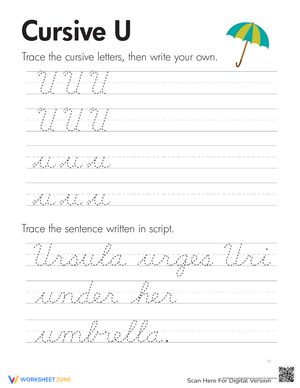 Cursive U
Trace the cursive letters, then write your own.
U U U
U U U
u u u
u u u
Trace the sentence written in script.
Ursula urges Uri
under her
umbrella.
WORKSHEETZONE
Scan Here For Digital Version